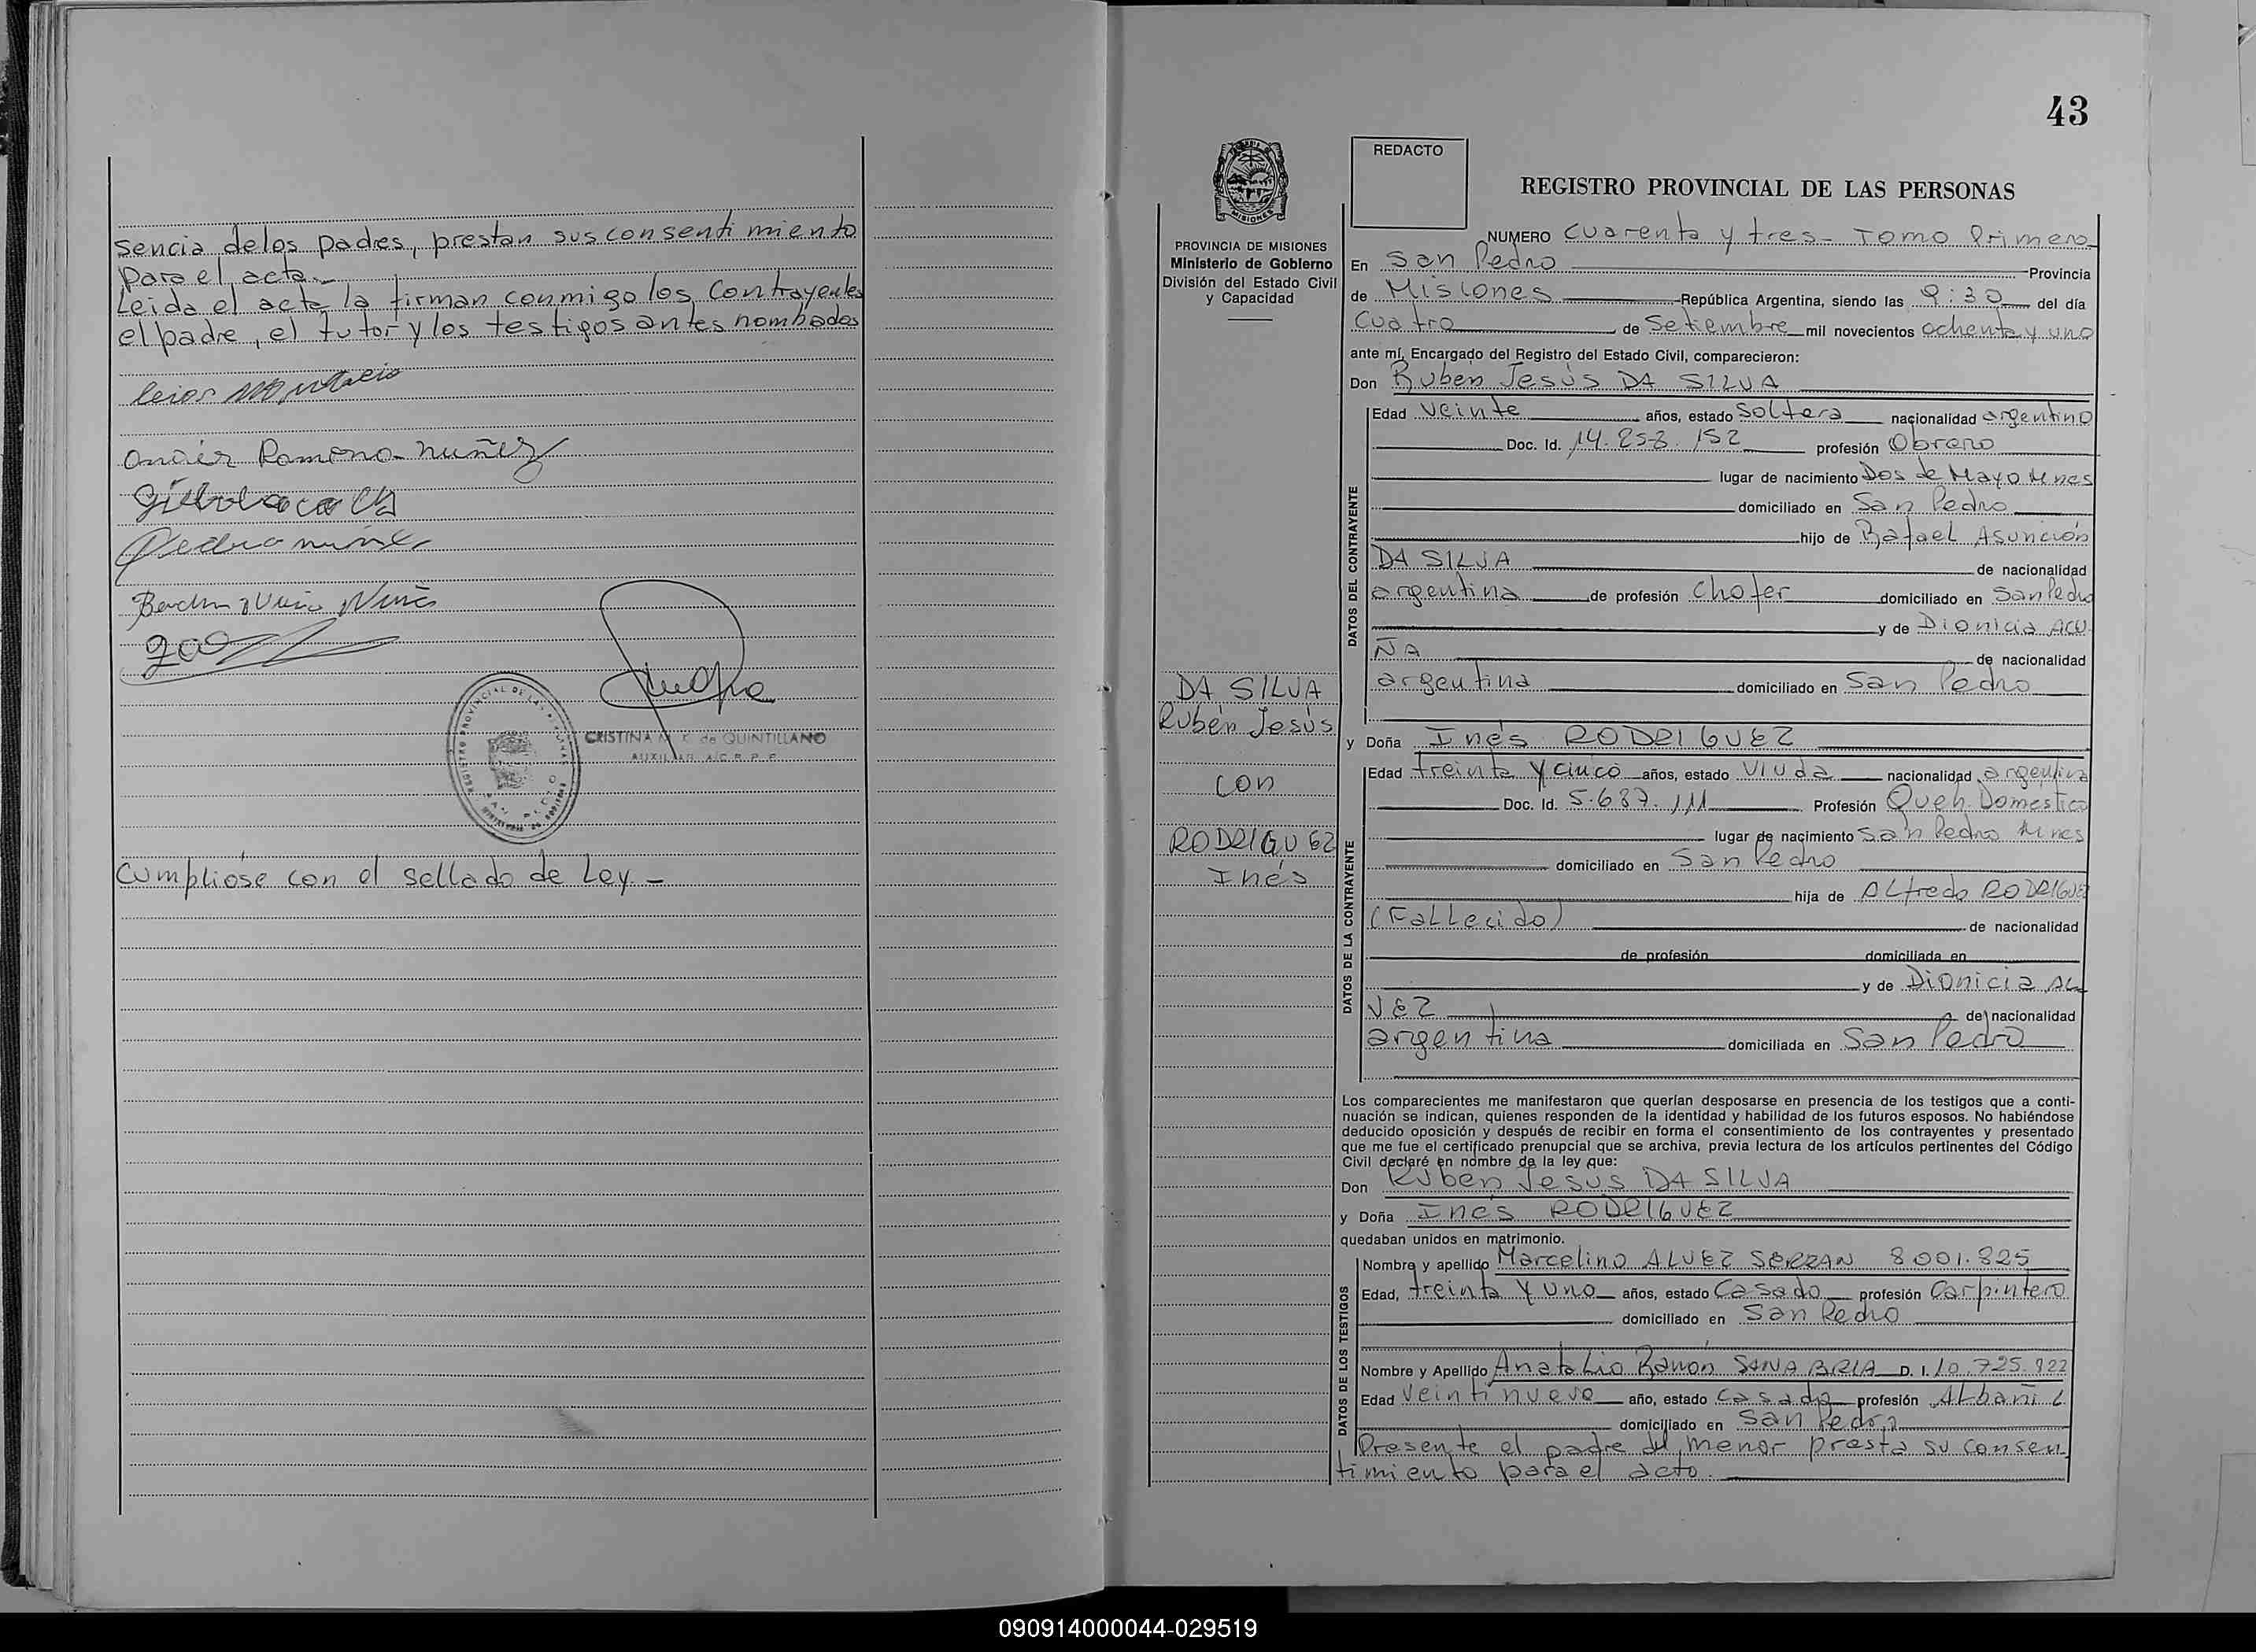 sencia de los padres, prestan sus consentimiento
para el acta.-
Leida el acta la firman conmigo los Contrayentes
el padre, el tutor y los testigos antes nombados
Ramona Nuñez
Pedro
REGISTRO PROVINCIAL DE LAS
CRISTINA M. de QUINTILLANO
AUXILIAR A/C R. P. P.
Cumplióse con el sellado de Ley.-
43
REDACTO
REGISTRO PROVINCIAL DE LAS PERSONAS
MISIONES
PROVINCIA DE MISIONES
Ministerio de Gobierno
División del Estado Civil
y Capacidad
DA SILVA
Rubén Jesús
con
RODRIGUEZ
Inés
NUMERO cuarenta y tres- Tomo Primero
En San Pedro Provincia
de Misiones República Argentina, siendo las 9:30 del día
cuatro de Setiembre mil novecientos ochenta y uno
ante mí, Encargado del Registro del Estado Civil, comparecieron:
Don Ruben Jesús DA SILVA
DATOS DEL CONTRAYENTE
Edad veinte años, estado soltera nacionalidad argentino
Doc. Id. 14.258.152 profesión Obrero
lugar de nacimiento Dos de Mayo Mnes
domiciliado en San Pedro
hijo de Rafael Asunción
DA SILVA de nacionalidad
argentina de profesión Chofer domiciliado en San Pedro
y de Dionicia ACU
ÑA de nacionalidad
argentina domiciliado en San Pedro
y Doña Inés RODRIGUEZ
DATOS DE LA CONTRAYENTE
Edad treinta y cinco años, estado viuda nacionalidad argentina
Doc. Id. 5.687.111 Profesión Queh. Domestico
lugar de nacimiento San Pedro Mnes
domiciliado en San Pedro
hija de Alfredo RODRIGUEZ
(Fallecido) de nacionalidad
de profesión domiciliada en
y de Dionicia AL
VEZ de nacionalidad
argentina domiciliada en San Pedro
Los comparecientes me manifestaron que querían desposarse en presencia de los testigos que a conti-
nuación se indican, quienes responden de la identidad y habilidad de los futuros esposos. No habiéndose
deducido oposición y después de recibir en forma el consentimiento de los contrayentes y presentado
que me fue el certificado prenupcial que se archiva, previa lectura de los artículos pertinentes del Código
Civil declaré en nombre de la ley que:
Don Ruben Jesus DA SILVA
y Doña Inés RODRIGUEZ
quedaban unidos en matrimonio.
DATOS DE LOS TESTIGOS
Nombre y apellido Marcelino ALVEZ SERRAN 8001.825
Edad, treinta y uno años, estado Casado profesión Carpintero
domiciliado en San Pedro
Nombre y Apellido Anatolio Ramón SANABRIA D. I. 10.725.922
Edad veintinueve año, estado casado profesión Albañil
domiciliado en San Pedro
Presente el padre del menor presta su consen
timiento para el acto.
090914000044-029519